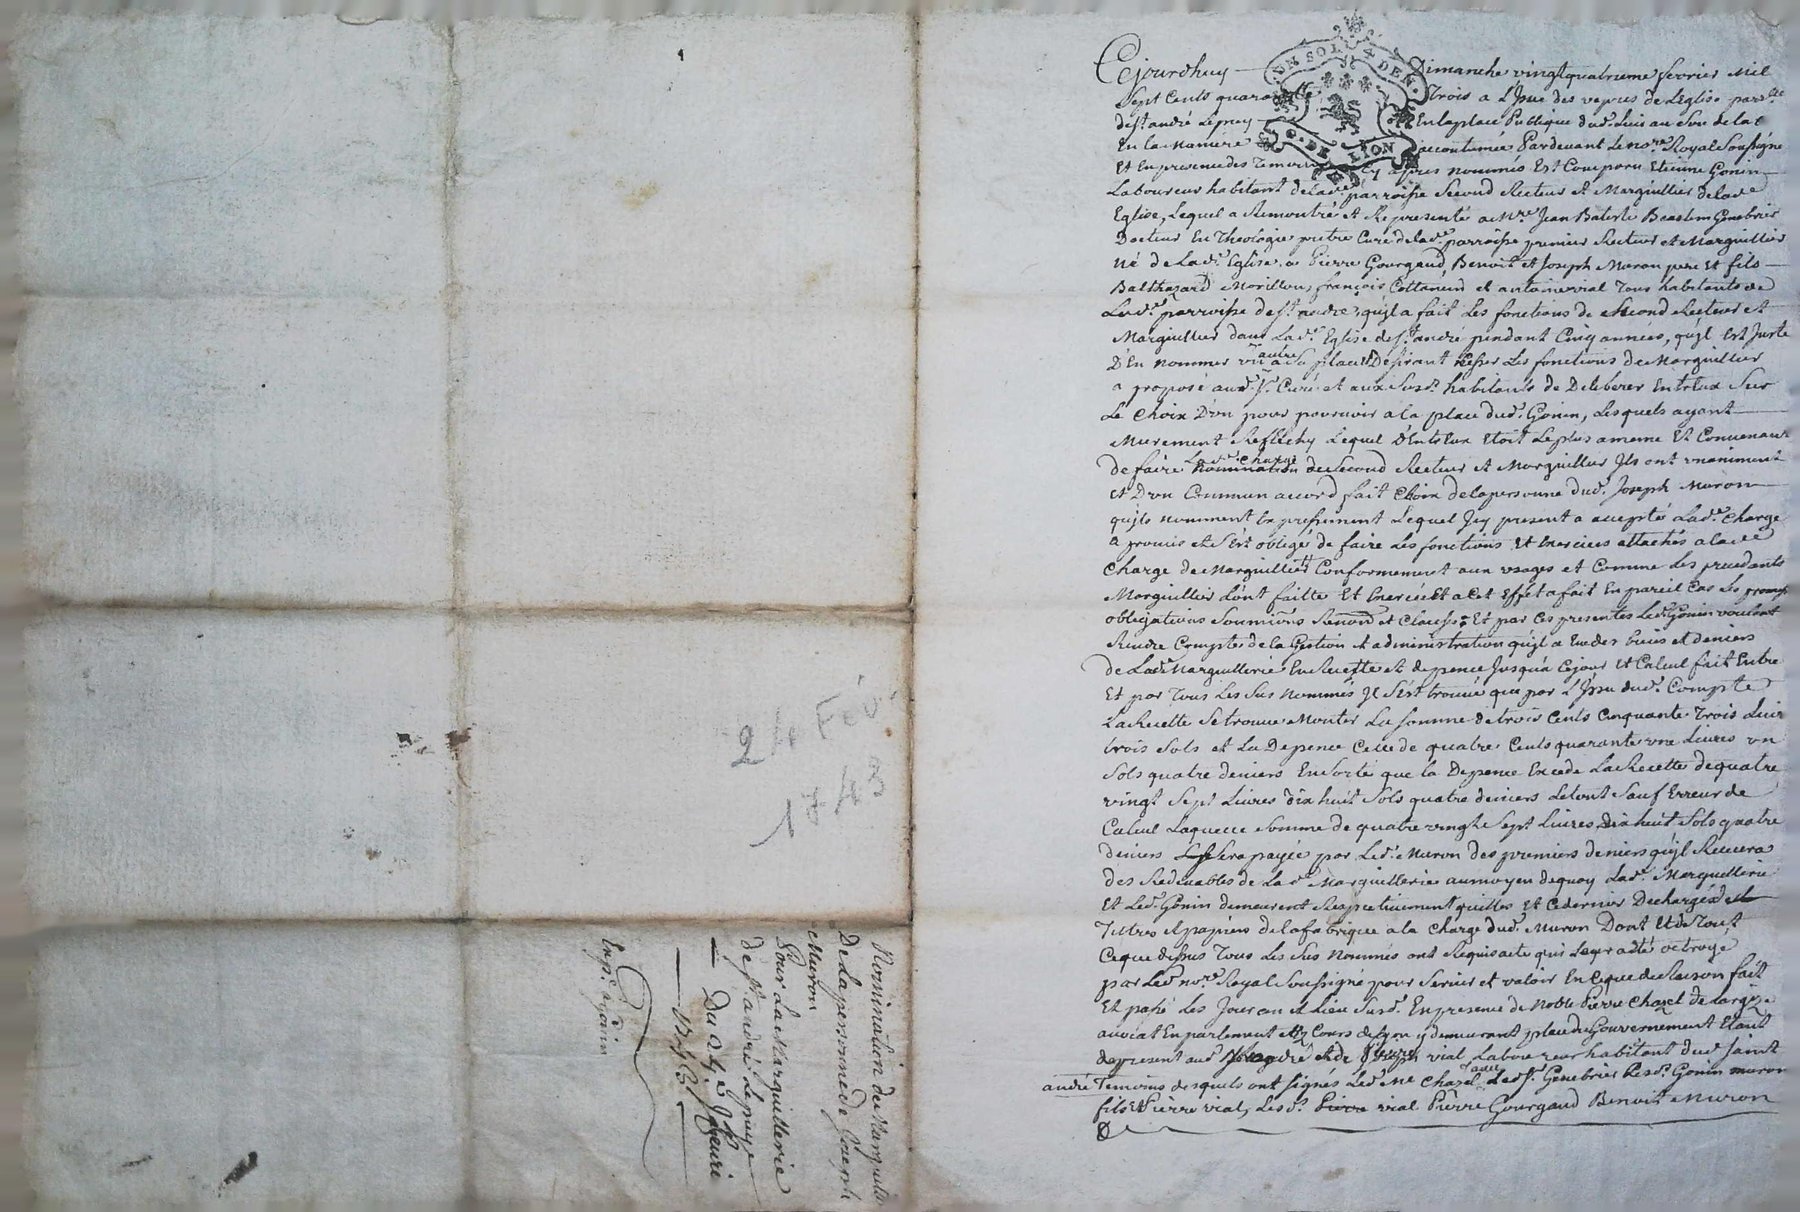 24 Fév.
1743
Nomination de Marguillier
De la personne de Joseph
Muron
Pour La Marguillerie
de st. andré Lepuy
Du 24e
1743
UN SOL 4 DEN.
G. DE LION
Cejourdhuy Dimanche vingtquatrieme fevrier Mil
Sept Cents quarante Trois a L'Issue des vepres de L'Eglise parlle
de st. andré Lepuy En la place Publique dud. Lieu au Son de la
En la Maniere accoutumée Pardevant Le nore. Royal Soussigné
Et En presence des Temoins Cy apres nommés Est Comparu Etienne Gonin
Laboureur habitant de lade parroisse Second Recteur et Marguillier de lade
Eglise, Lequel a Remontré et Representé a Mre Jean Batiste Genebrier
Docteur En Theologie pretre Curé de lade. parroisse premier Recteur et Marguillier
Né de Lade. Eglise, a Pierre Gourgaud, Benoit et Joseph Muron pere et fils
Balthazard Morillon, françois Cottancin et antoine vial Tous habitants de
Lade. parroisse de st. andré, qu'jl a fait Les fonctions de Second Recteur et
Marguillier dans Lade. Eglise de st. andré pendant Cinq années, qu'jl Est Juste
D'En nommer un autre a Sa place Desirant Cesser Les fonctions de Marguillier
a proposé aud. Sr. Curé et aux Susd. habitants de Deliberer Entr'Eux Sur
Le Choix D'un pour pourvoir a la place dud. Gonin, Lesquels ayant
Murement Reflechy Lequel D'Entr'Eux Etoit Le plus a meme Et Convenant
de faire Lade. Charge nomination de Second Recteur et Marguillier Ils ont unaniment
et D'un Commun accord fait Choix de la personne dud. Joseph Muron
qu'jls nomment Expressement Lequel Jcy present a accepté Lade. Charge
a promis et S'Est obligé de faire Les fonctions Et Exercices attachés a lade
Charge de Marguillier Conformement aux usages et Comme Les precedants
Marguillier L'ont faitte Et Exercée Et a Cet Effet a fait En pareil Cas Les prom.
obligations Soumions Renond. et Clauses Et par Ces presentes Led. Gonin voulant
Rendre Compte de la Gestion et administration qu'jl a Eue des biens et deniers
de Lade. Marguillerie En Recette et depence Jusqu'a Cejour Et Calcul fait Entre
Et par Tous Les Sus nommés Jl S'Est trouvé que par L'Issue dud. Compte
La Recette Se trouve Monter La Somme de trois Cents Cinquante Trois Livres
trois Sols et La Depence Celle de quatre Cents quarante une Livres un
Sols quatre deniers Ensorte que la Depence Excede La Recette de quatre
vingt Sept Livres dix huit Sols quatre deniers Le tout Sauf Erreur de
Calcul Laquelle Somme de quatre vingt Sept Livres dix huit Sols quatre
deniers Sera payée par Led. Muron des premiers deniers qu'jl Recevra
des Redevables de Lade. Marguillerie aumoyen dequoy Lade. Marguillerie
Et Led. Gonin demeurent Respectivement quittes Et Ce dernier Dechargé de
Tittres et papiers de la fabrique a la Charge dud. Muron Dont Et de Tout
Ceque dessus Tous Les Sus Nommés ont Requis acte qui Leur a été octroyé
par Led. nore. Royal Soussigné pour Servir et valoir En Ceque de Raison fait
Et passé Les Jour an et Lieu Susd. En presence de Noble Pierre Chazel
avocat En parlement Et Cours de Lyon y demeurant place du Gouvernement Etant
de present aud. St andré et de vial Laboureur habitant dud. Saint
andré Temoins desquels ont Signés Led. Me Chazel avec Led. Sr. Genebrier Lesd. Gonin muron
fils Et Pierre vial, Lesd. Pierre vial Pierre Gourgaud Benoit Muron